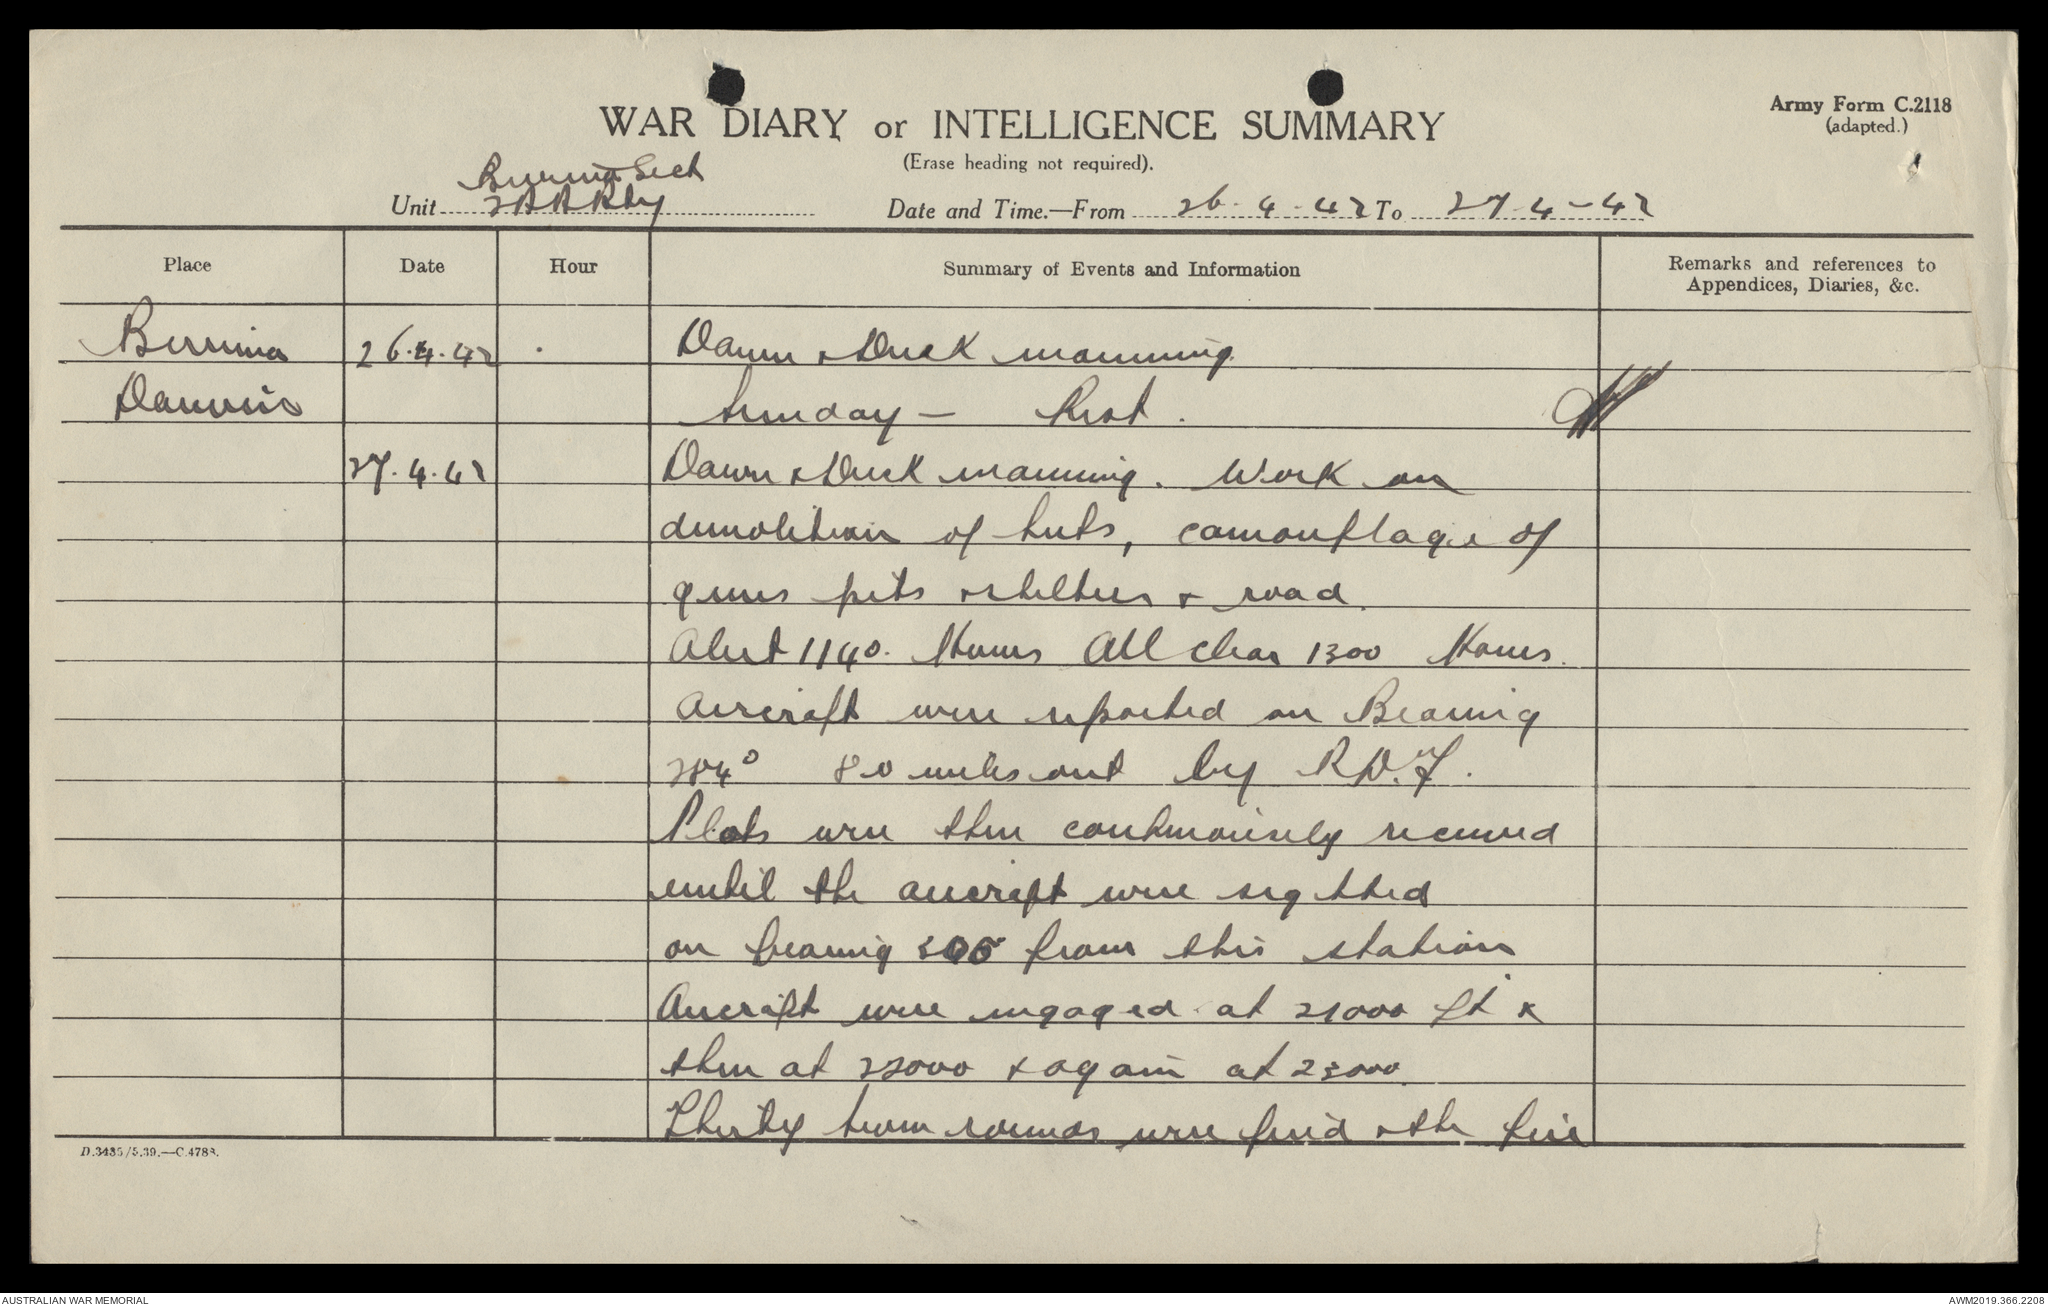 WAR DIARY or INTELLIGENCE SUMMARY
Army Form C.2118
(adapted.)
(Erase heading not required).
Berrima Sect
Unit 2 A A Bty
Date and Time.—From 26.4.42 To 27.4-42
Place Date Hour Summary of Events and Information Remarks and references to Appendices, Diaries, &c.
Berrima 26.4.42 Dawn & Dusk manning.
Darwin Sunday - Rest.
27.4.42 Dawn & Dusk manning. Work on
demolition of huts, camouflage of
guns pits & shelters & road.
Alert 1140. Hours All clear 1300 Hours.
Aircraft were reported on Bearing
284° 80 miles out by R.D.F.
Plots were then continuously received
until the aircraft were sighted
on bearing from this station
Aircraft were engaged at 21000 ft &
then at 22000 & again at 23000.
Thirty rounds were fired & the fire
D.3435/5.39.—C.4788.
AUSTRALIAN WAR MEMORIAL
AWM2019.366.2208